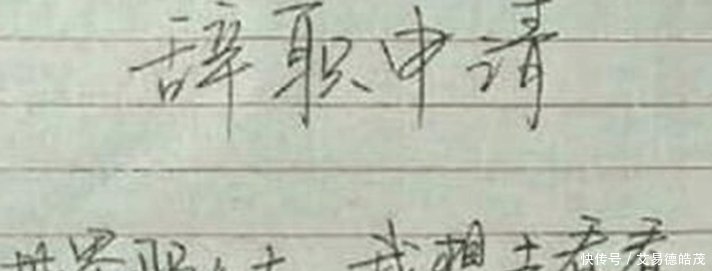 辞职申请
世界那么大,我想去看看
快传号/艾易德皓茂